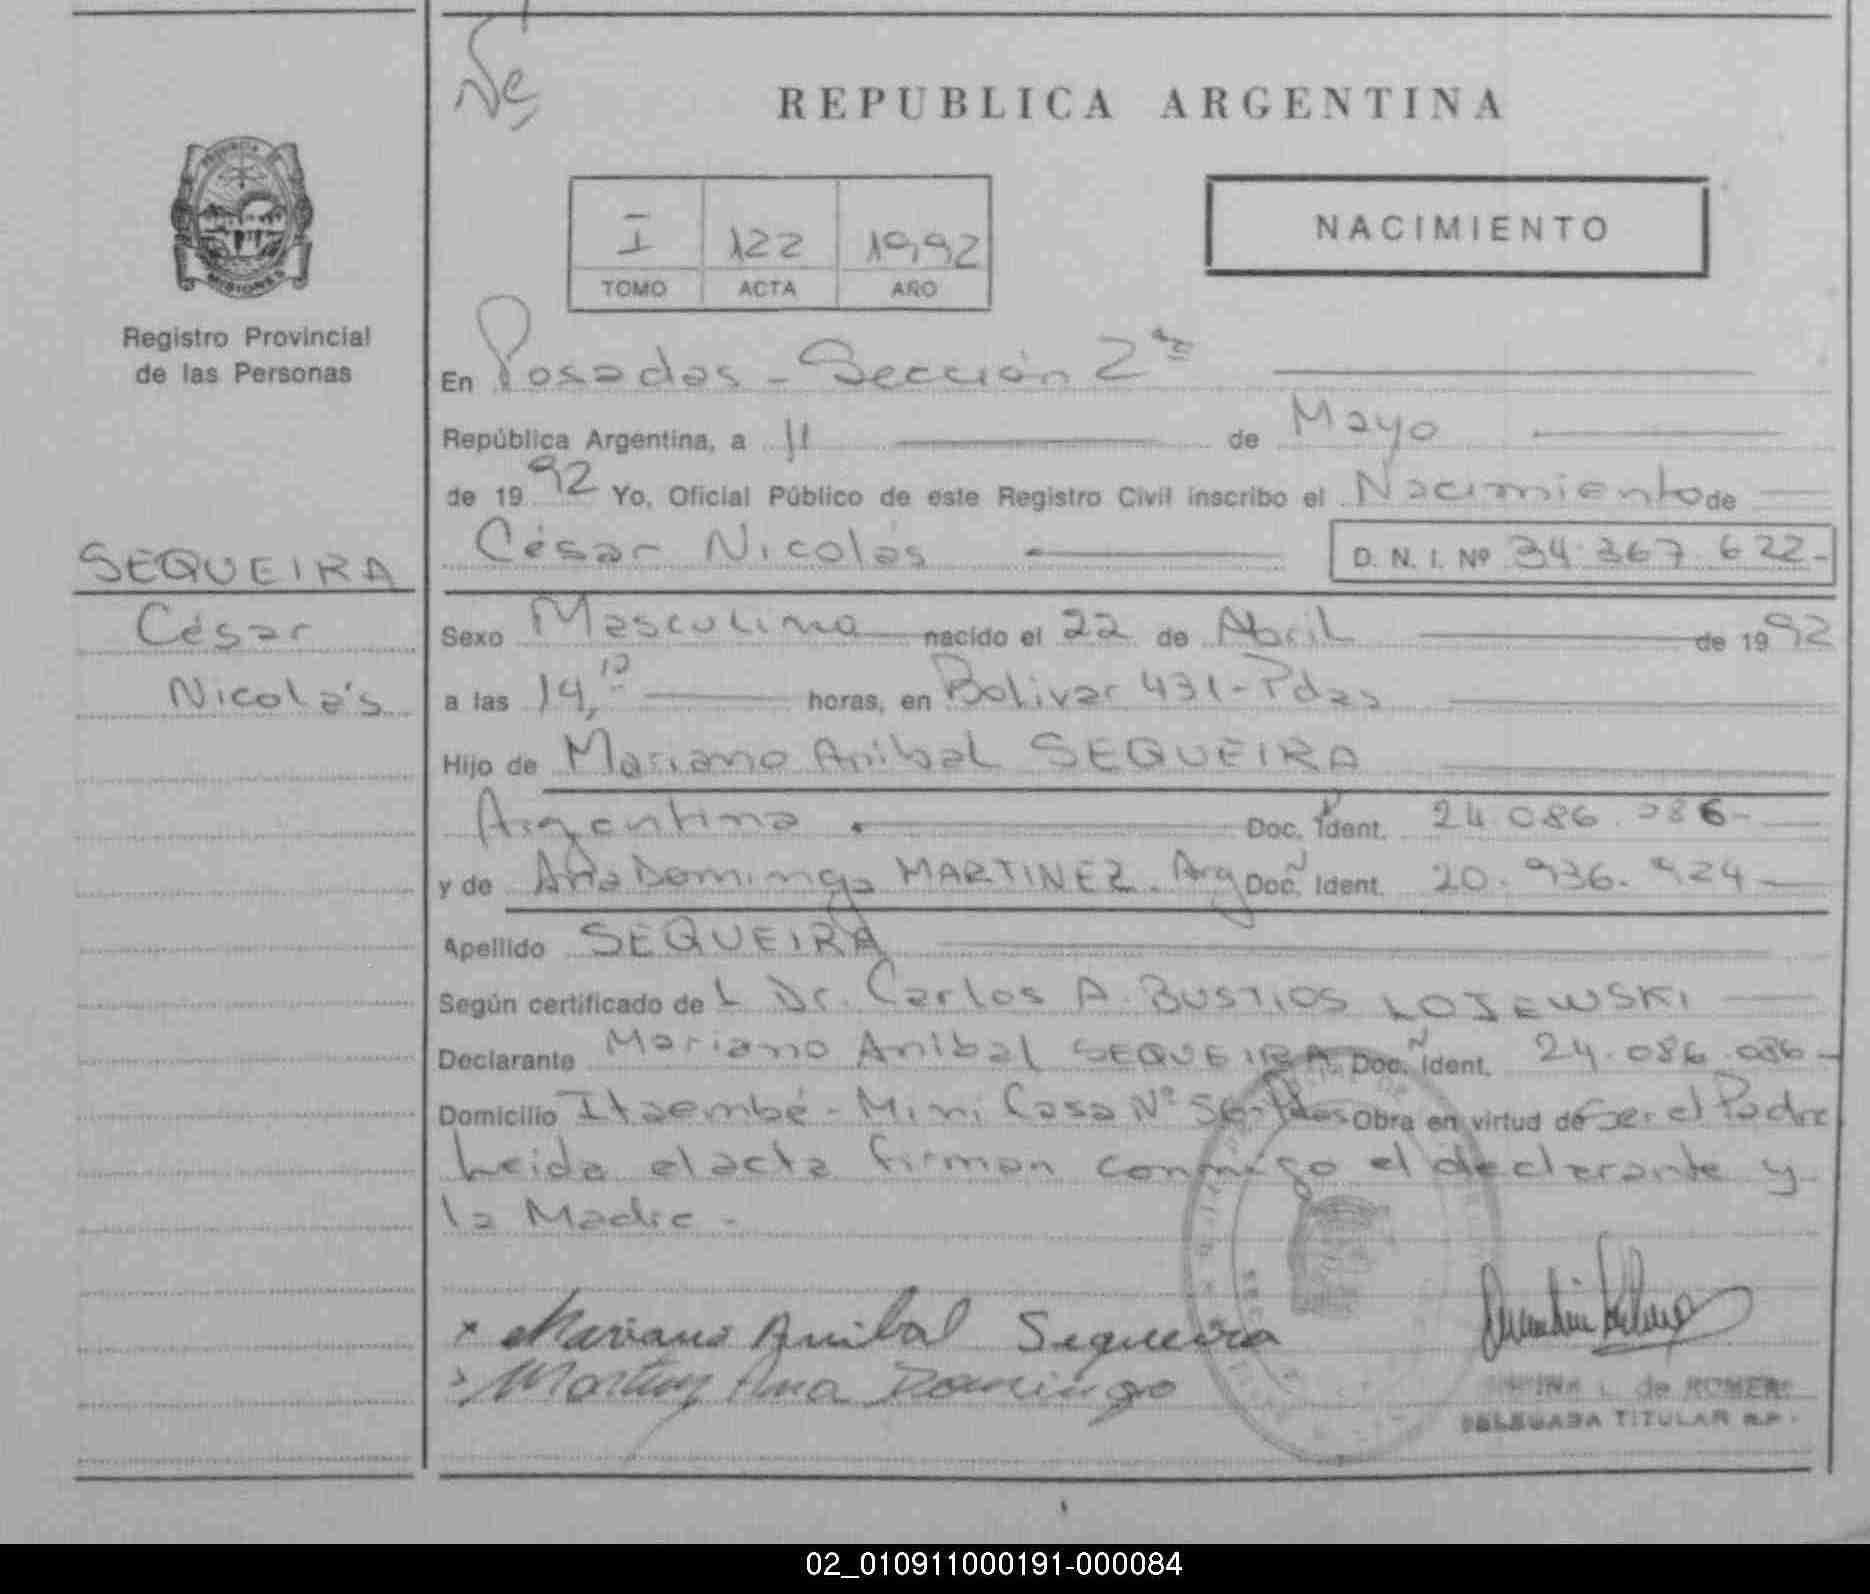 REPUBLICA ARGENTINA
PROVINCIA
MISIONES
Registro Provincial
de las Personas
I 122 1992
TOMO ACTA AÑO
NACIMIENTO
En Posadas - Sección 2da
República Argentina, a 11 de Mayo
de 1992 Yo, Oficial Público de este Registro Civil inscribo el Nacimiento de
César Nicolás D. N. I. Nº 34.367.622-
SEQUEIRA
César
Nicolás
Sexo Masculino nacido el 22 de Abril de 1992
a las 14,10 horas, en Bolivar 431-Pdas
Hijo de Mariano Anibal SEQUEIRA
Argentino Doc. Ident. 24.086.086-
y de Ana Dominga MARTINEZ. Arg Doc. Ident. 20.936.924-
Apellido SEQUEIRA
Según certificado del Dr. Carlos A. BUSTIOS LOJEWSKI
Declarante Mariano Anibal SEQUEIRA Doc. Ident. 24.086.086-
Domicilio Itaembé - Mini Casa Nº Pdas Obra en virtud de Ser el Padre
Leida el acta firman conmigo el declarante y
la Madre -
x Mariano Anibal Sequeira
Ana Dominga
de ROMERO
DELEGADA TITULAR R.P.
02_010911000191-000084